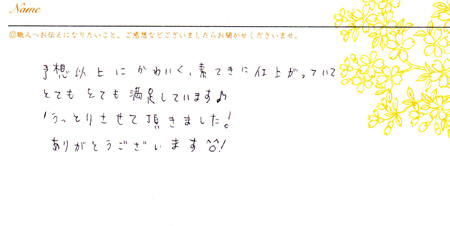 Name
◎職人へお伝えになりたいこと、ご感想などございましたらお聞かせくださいませ。
予想以上にかわいく、素てきに仕上がっていて
とても とても 満足しています♪
うっとりさせて頂きました!
ありがとうございます^^!